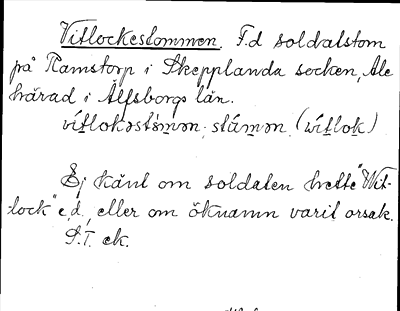 Vitlockestommen. F.d soldatstom
på Ramstorp i Skepplanda socken, Ale
härad i Älfsborgs län.
vítlokəstòmən, stómən, (wítlok)
Ej känt om soldaten hette "Wit-
lock" e,d, eller om öknamn varit orsak.
S.T. ek.